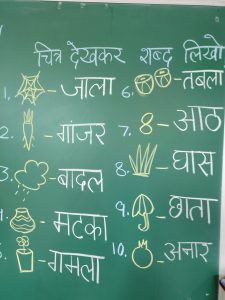 चित्र देखकर शब्द लिखो
1. - जाला
2. - गांजर
3. - बादल
4. - मटका
5. - गमला
6. - तबला
7. 8 - आठ
8. - घास
9. - छाता
10. - अनार